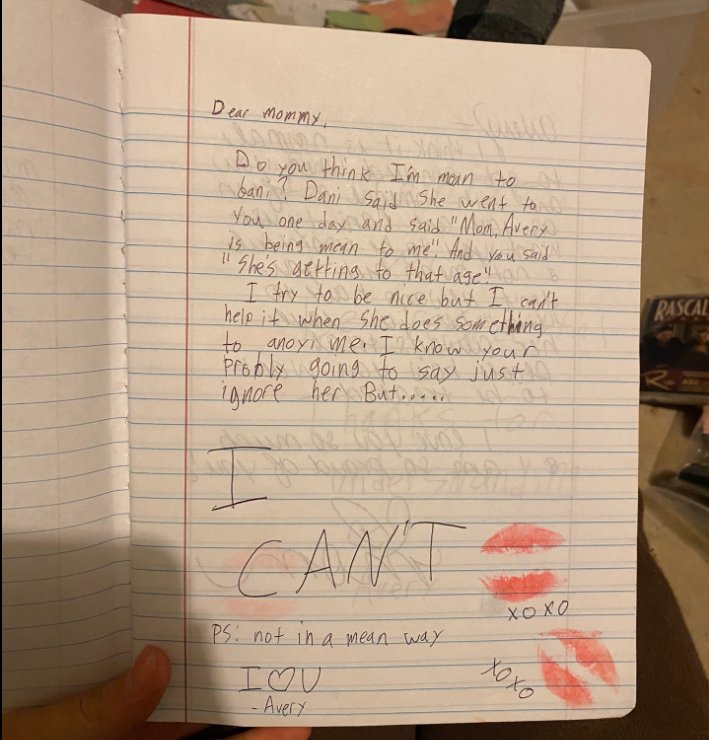 Dear mommy,
Do you think I'm mean to
Dani? Dani said she went to
you one day and said "Mom, Avery
is being mean to me". And you said
"She's getting to that age".
I try to be nice but I can't
help it when she does something
to anoyi me. I know your
probly going to say just
ignore her But.....
I
CAN'T
XOXO
PS: not in a mean way
XOXO
I ♡ U
- Avery
RASCAL
R